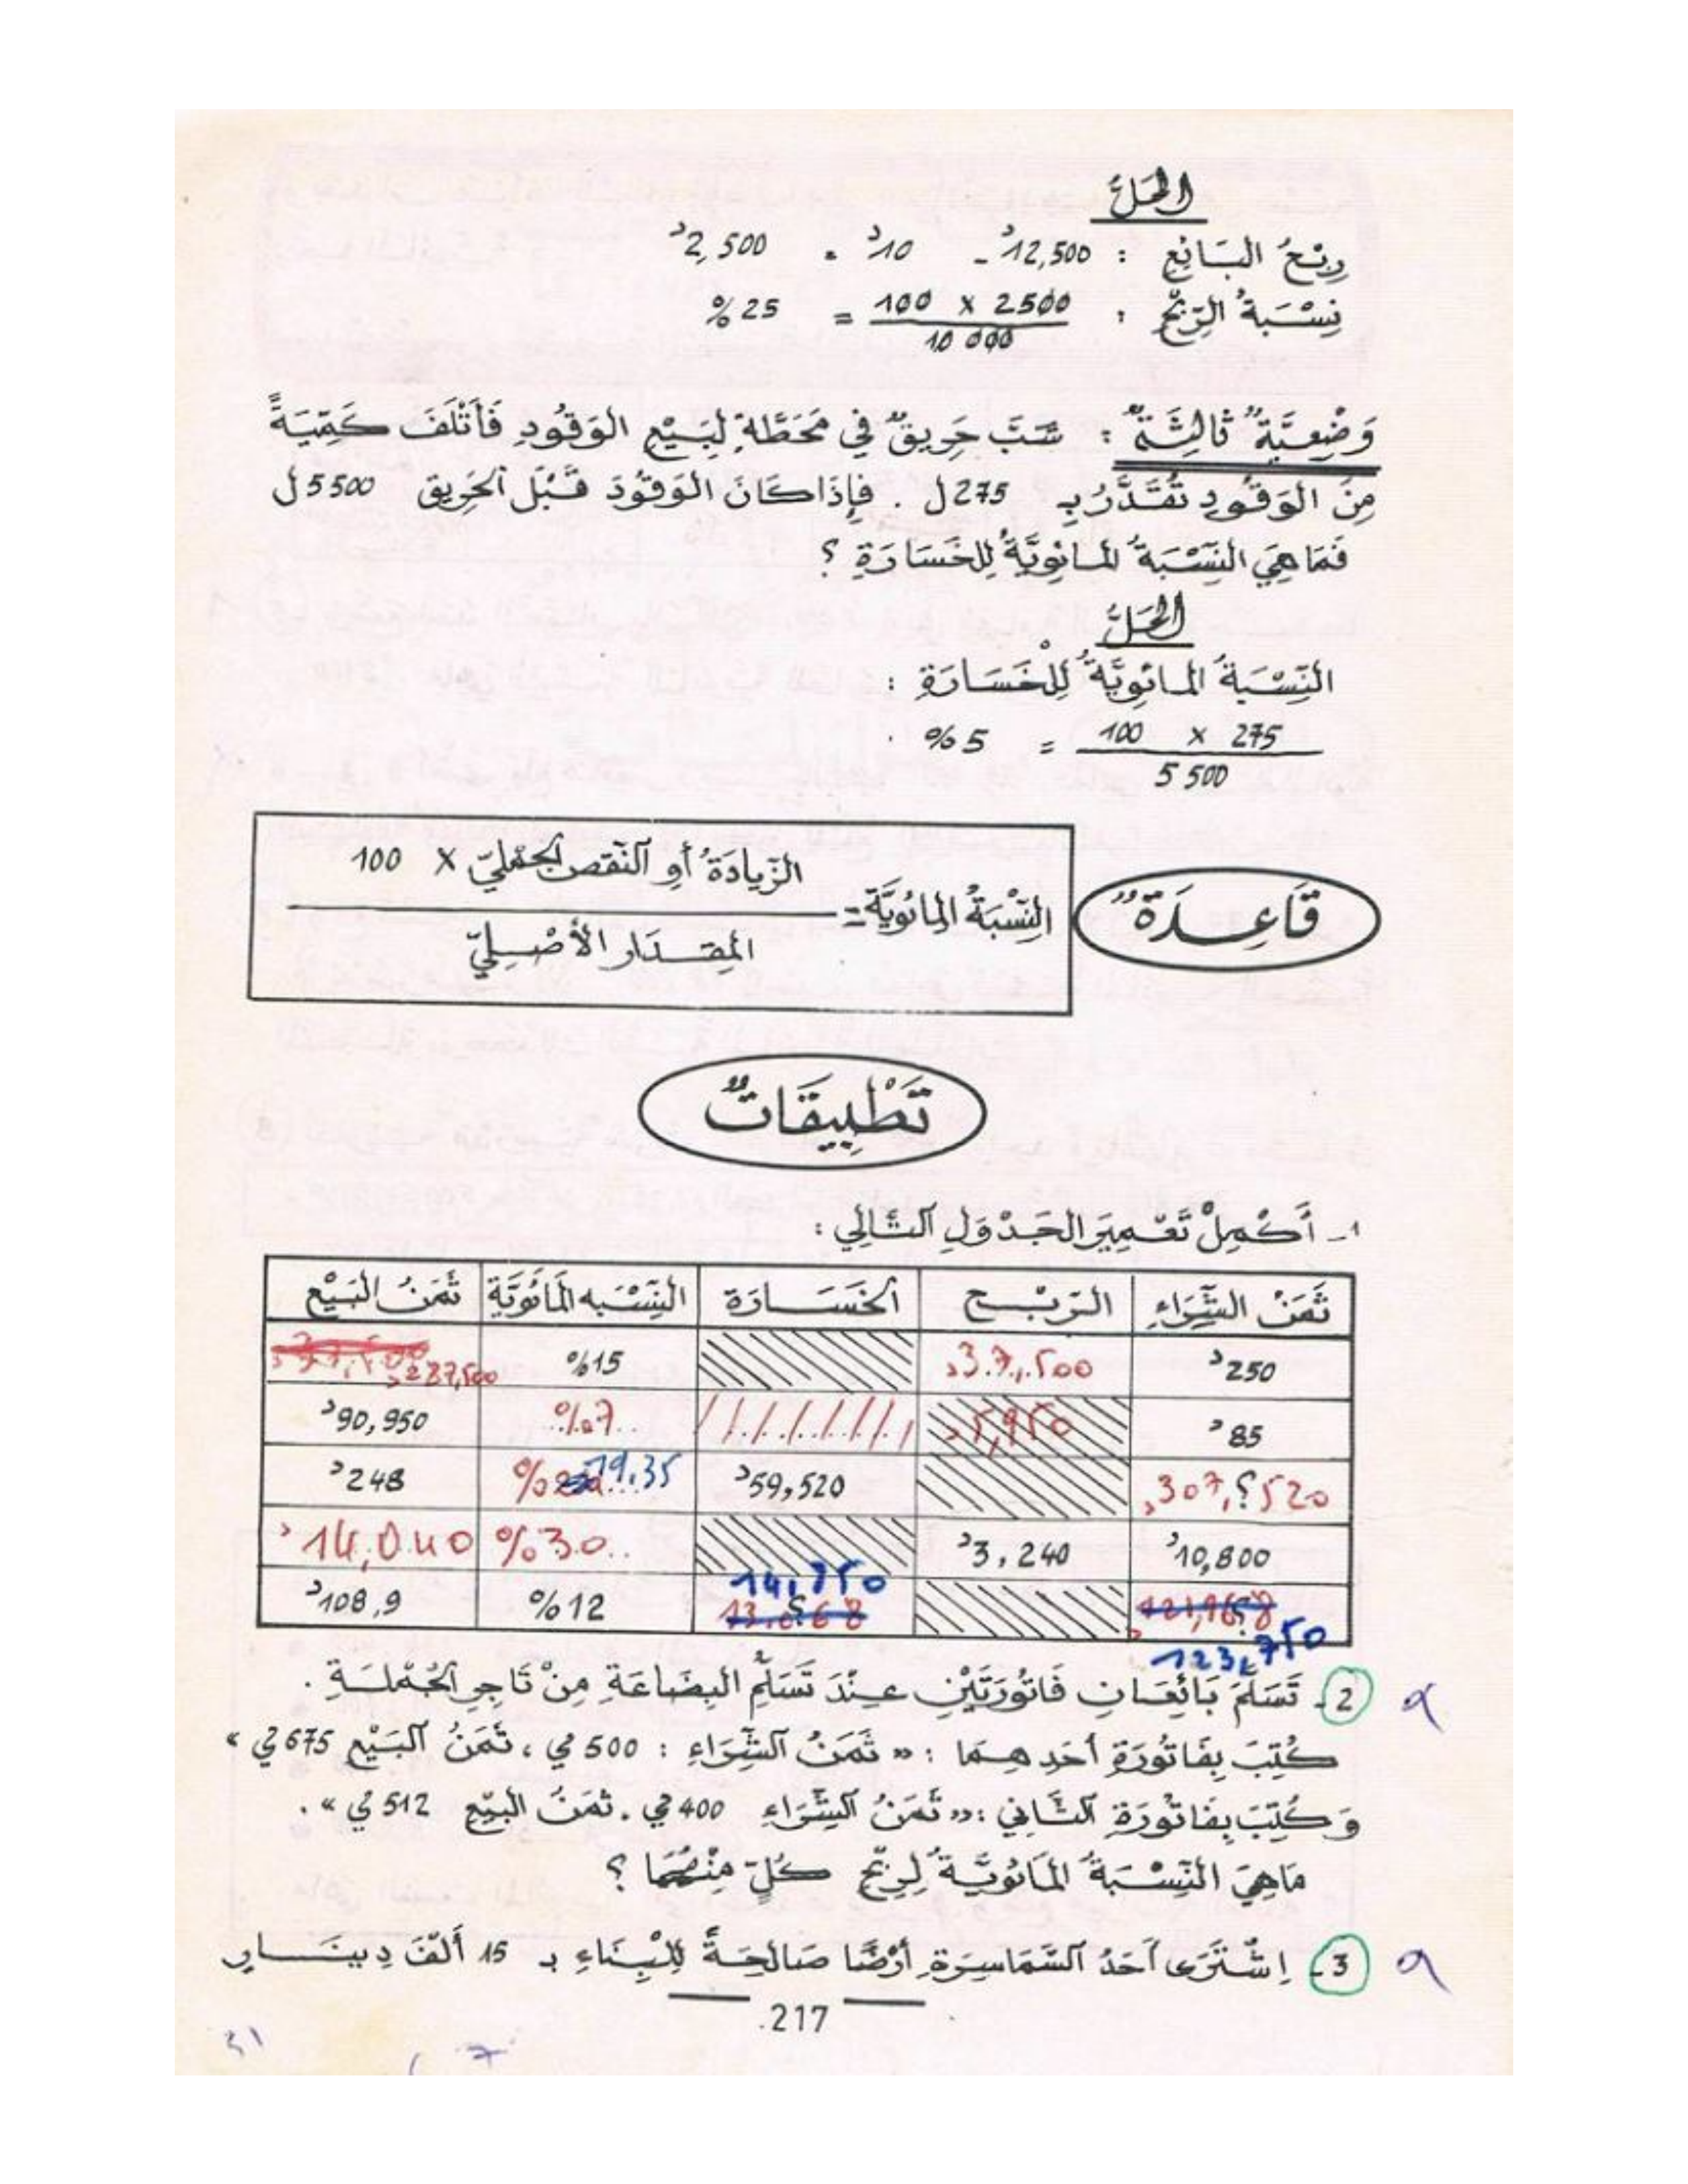 الحَلُّ
رِبْحُ البَائِعِ : 12,500د - 10د = 2,500د
نِسْبَةُ الرِّبْحِ : 100 x 2500 / 10 000 = 25 %
وَضْعِيَّةٌ ثَالِثَةٌ : شَبَّ حَرِيقٌ فِي مَحَطَّةٍ لِبَيْعِ الوَقُودِ فَأَتْلَفَ كَمِّيَةً
مِنَ الوَقُودِ تُقَدَّرُ بِـ 275 ل . فَإِذَا كَانَ الوَقُودُ قَبْلَ الحَرِيقِ 5500 ل
فَمَا هِيَ النِّسْبَةُ المائَوِيَّةُ لِلخَسَارَةِ ؟
الحَلُّ
النِّسْبَةُ المائَوِيَّةُ لِلْخَسَارَةِ :
100 x 275 / 5 500 = 5 %
قَاعِدَةٌ
النِّسْبَةُ المائَوِيَّة = الزِّيادَةُ أو النّقص الجمليّ x 100 / المقدَار الأَصْلِيّ
تَطْبِيقَاتٌ
1 - أَكْمِلْ تَعْمِيرَ الجَدْوَلِ التَّالِي :
ثَمَنُ الشِّرَاءِ الرّبْح الخَسَارَة النِّسْبَه المَائَوِيَّة ثَمَنُ البَيْعِ
250د 37,500د 15% 287,500د
85د 5,950د 7% 90,950د
307,520د ؟ 59,520د 19,35 % 248د
10,800د 3,240د 30% 14,040د
؟ 123,750 ؟ 14,850 12% 108,9د
2 - تَسَلَّمَ بَائِعَانِ فَاتُورَتَيْنِ عِنْدَ تَسَلُّمِ البِضَاعَةِ مِنْ تَاجِرِ الجُمْلَةِ .
كُتِبَ بِفَاتُورَةِ أَحَدِهِمَا : « ثَمَنُ الشِّرَاءِ : 500 مي ، ثَمَنُ البَيْعِ 675 مي »
وَكُتِبَ بِفَاتُورَةِ الثَّانِي : « ثَمَنُ الشِّرَاءِ 400 مي . ثَمَنُ البَيْعِ 512 مي » .
مَاهِيَ النِّسْبَةُ المَائَوِيَّةُ لِرِبْحِ كُلٍّ مِنْهُمَا ؟
3 - اِشْتَرَى أَحَدُ السَّمَاسِرَةِ أَرْضًا صَالِحَةً لِلْبِنَاءِ بـ 15 أَلْفَ دِينَارٍ
217